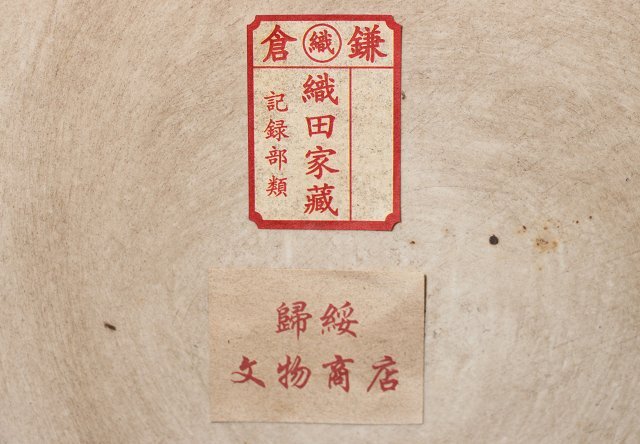 鎌㊢倉
織田家藏
記録部類
歸綏
文物商店